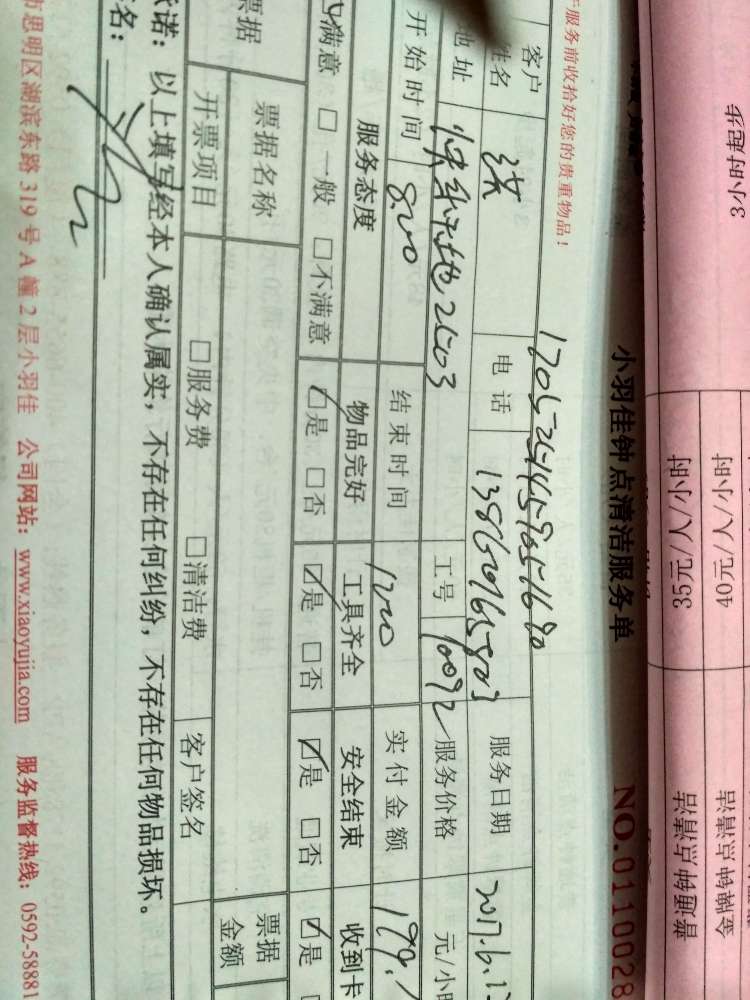 3小时起步
金牌钟点清洁 40元/人/小时
普通钟点清洁 35元/人/小时
小羽佳钟点清洁服务单 NO.0110028
服务前收拾好您的贵重物品!
客户姓名 张 电话 服务日期 2017.6.1
地址 2503 工号 10092 服务价格 元/小时
开始时间 8:00 结束时间 1200 实付金额 199.
服务态度 物品完好 工具齐全 安全结束 收到卡
满意 □一般 □不满意 ☑是 □否 ☑是 □否 ☑是 □否 ☑是
票据 票据名称 票据金额
开票项目 □服务费 □清洁费 客户签名
承诺:以上填写经本人确认属实,不存在任何纠纷,不存在任何物品损坏。
名:
市思明区湖滨东路 319 号 A 幢 2 层小羽佳 公司网站:www.xiaoyujia.com 服务监督热线:0592-58881